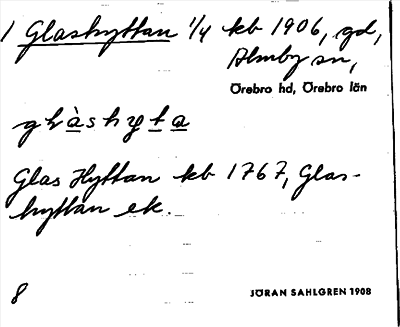 1 Glashyttan 1/4 kb 1906, gd,
Almby sn,
Örebro hd, Örebro län
glàshyta
Glas Hyttan kb 1767, Glas-
hyttan ek.
8
JÖRAN SAHLGREN 1908